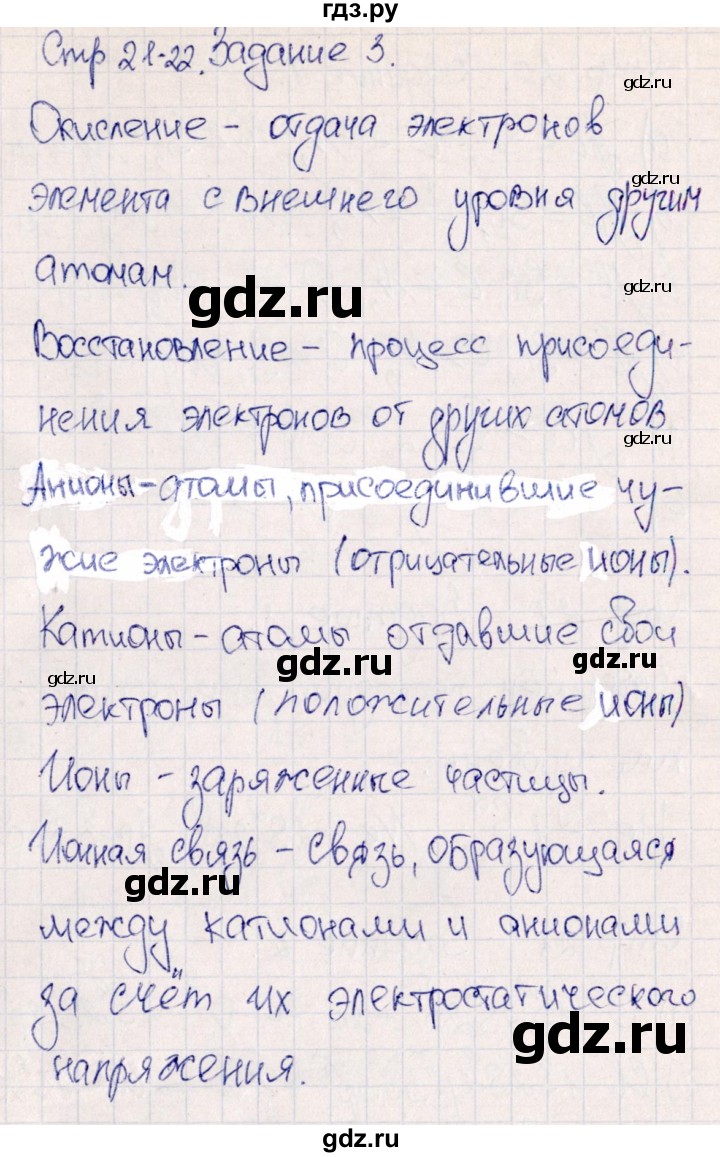 гдз.ру
Стр 21-22. Задание 3.
gdz.ru
Окисление - отдача электронов
gdz.ru
элемента с внешнего уровня другим
атомам.
gdz.ru
gdz.ru
Восстановление - процесс присоеди-
нения электронов от других атомов
gdz.ru
Анионы - атомы, присоединившие чу-
жие электроны (отрицательные ионы).
gdz.ru
Катионы - атомы отдавшие свои
gdz.ru
gdz.ru
gdz.ru
электроны (положительные ионы)
Ионы - заряженные частицы.
Ионная связь - связь, образующаяся
gdz.ru
gdz.ru
между катионами и анионами
за счёт их электростатического
gdz.ru
напряжения.
gdz.ru